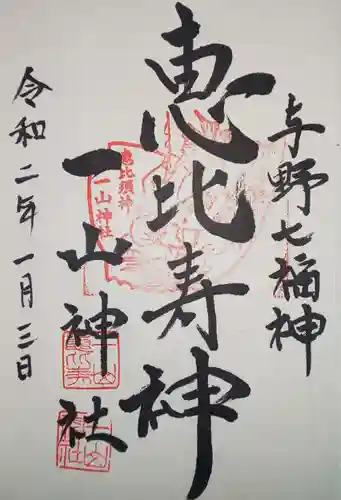 与野七福神
恵比寿神
恵比須神
一山神社
一山神社
令和二年一月三日